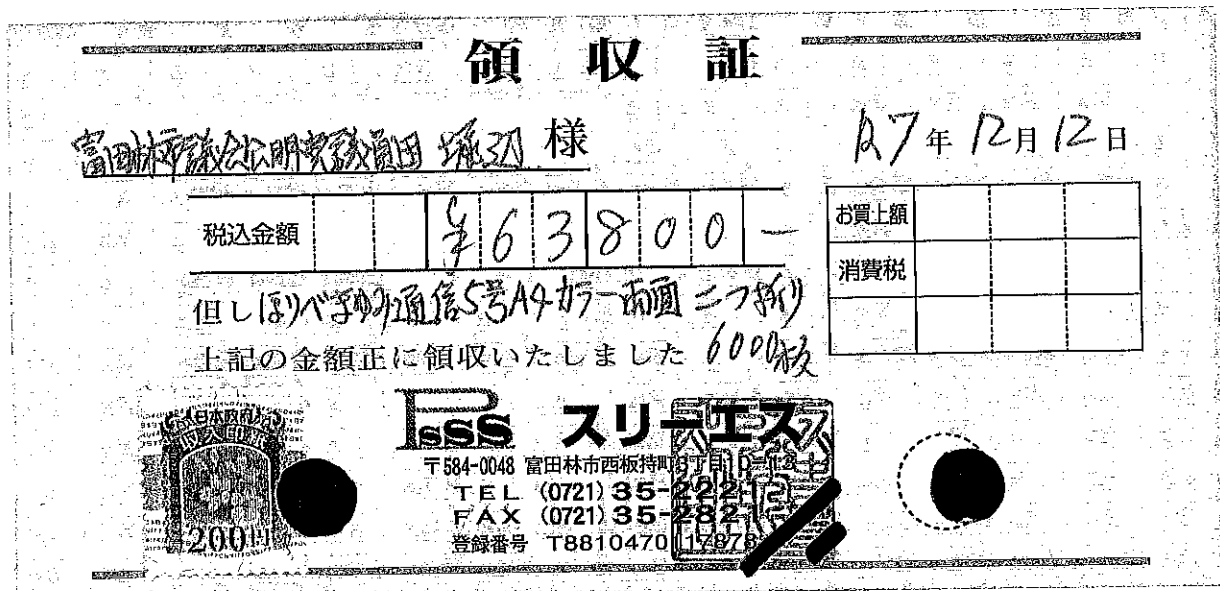 領収証
富田林市議会公明党議員団 堀辺 様
R7年12月12日
税込金額 ¥63800-
お買上額
消費税
但しほりべまゆみ通信5号A4カラー両面 二つ折り
上記の金額正に領収いたしました 6000枚
日本政府
収入印紙
200円
Psss スリーエス
〒584-0048 富田林市西板持町3丁目10-12
TEL (0721) 35-2221
FAX (0721) 35-2821
登録番号 T8810470117878